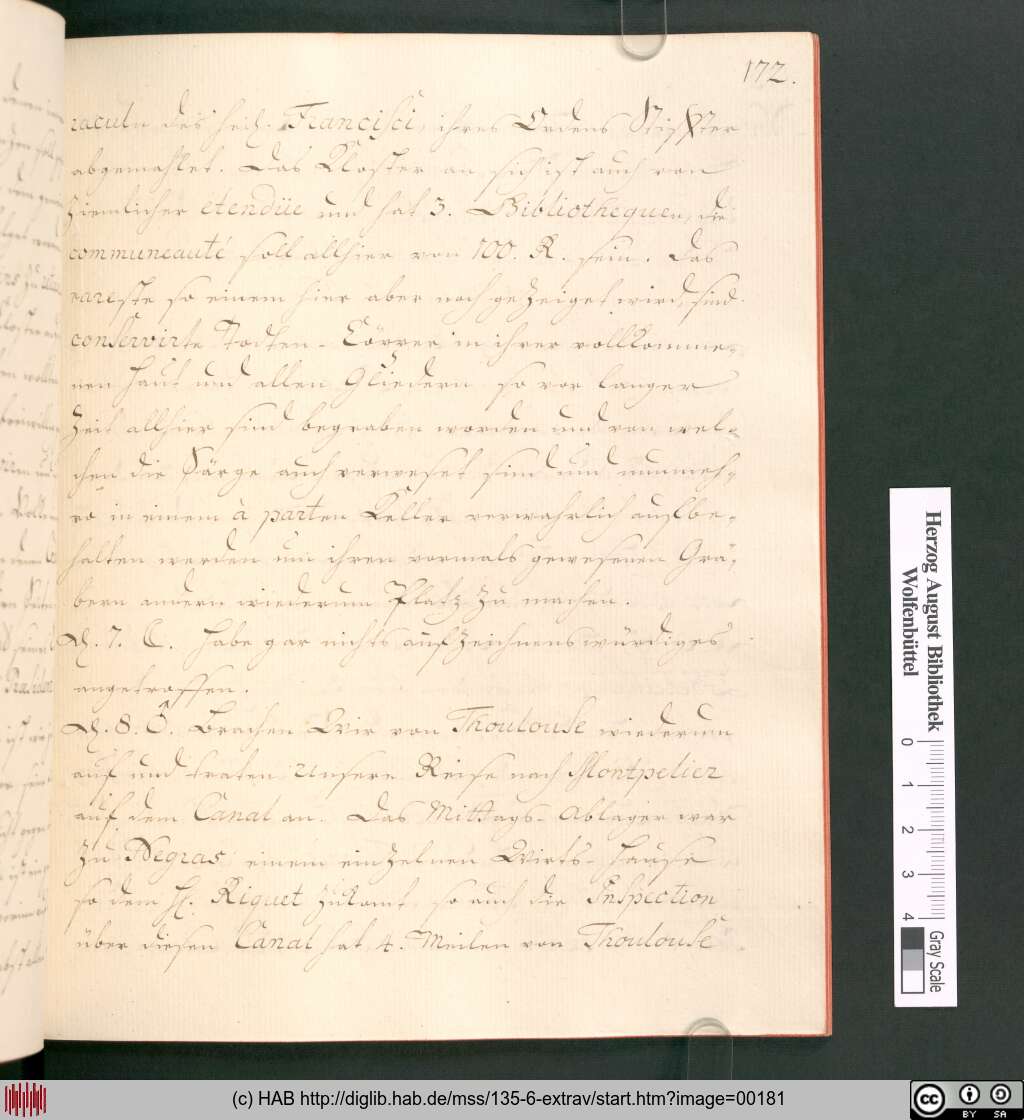 172.
racula des heil. Francisci, ihres Ordens Stiffter
abgemahlet. Das Kloster an sich ist auch von
ziemlicher etendüe und hat 3. Bibliothequen, die
communeauté soll allhier von 100. R. sein. Das
rareste so einem hier aber noch gezeiget wird, sind
conservirte Todten-Cörper in ihrer vollkomme-
nen Haut und allen Gliedern so vor langer
Zeit allhier sind begraben worden und von wel-
chen die Särge auch verweset sind und nunmeh-
ro in einem à parten Keller verwahrlich aufbe-
halten werden um ihren vormals gewesenen Grä-
bern andern wiederum Platz zu machen.
D. 7. habe gar nichts aufzeichnenswürdiges
angetroffen.
D. 8. Brachen Wir von Thoulouse wiederum
auf und traten Unsere Reise nach Montpelier
auf dem Canal an. Das Mittags-Ablager war
zu Negras einem einzelnen Wirts-Hause
so dem H. Riquet zukomt, so auch die Inspection
über diesen Canal hat, 4. Meilen von Thoulouse
Herzog August Bibliothek
Wolfenbüttel
0 1 2 3 4
Gray Scale
(c) HAB http://diglib.hab.de/mss/135-6-extrav/start.htm?image=00181
cc BY SA